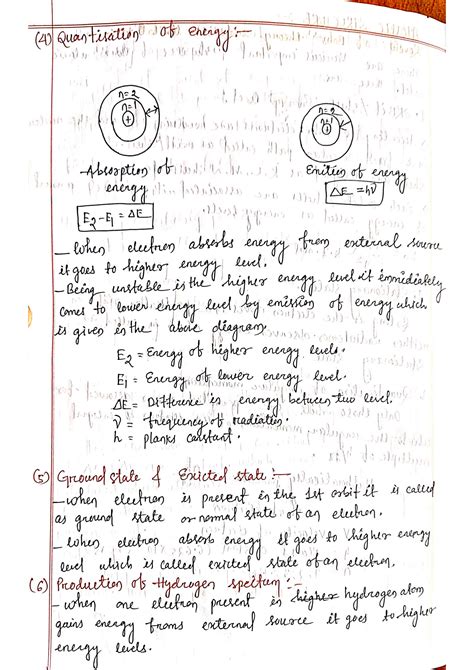 (4) Quantisation of energy:-
n=2
n=1
+
n=2
n=1
+
Absorption of
energy
Emition of energy
E2-E1 = ΔE
ΔE = hν
- When electron absorbs energy from external source
it goes to higher energy level.
- Being unstable is the higher energy level it immediately
comes to lower energy level by emission of energy which
is given in the above diagram.
E2 = Energy of higher energy levels.
E1 = Energy of lower energy level.
ΔE = Difference in energy between two level.
ν = frequency of radiation.
h = planks constant.
(5) Ground state & Exicted state:-
- when electron is present in the 1st orbit it is called
as ground state or normal state of an electron.
- When electron absorb energy it goes to higher energy
level which is called exicted state of an electron.
(6) Production of Hydrogen spectrum:-
- when one electron present in higher hydrogen atom
gains energy froms external source it goes to higher
energy levels.